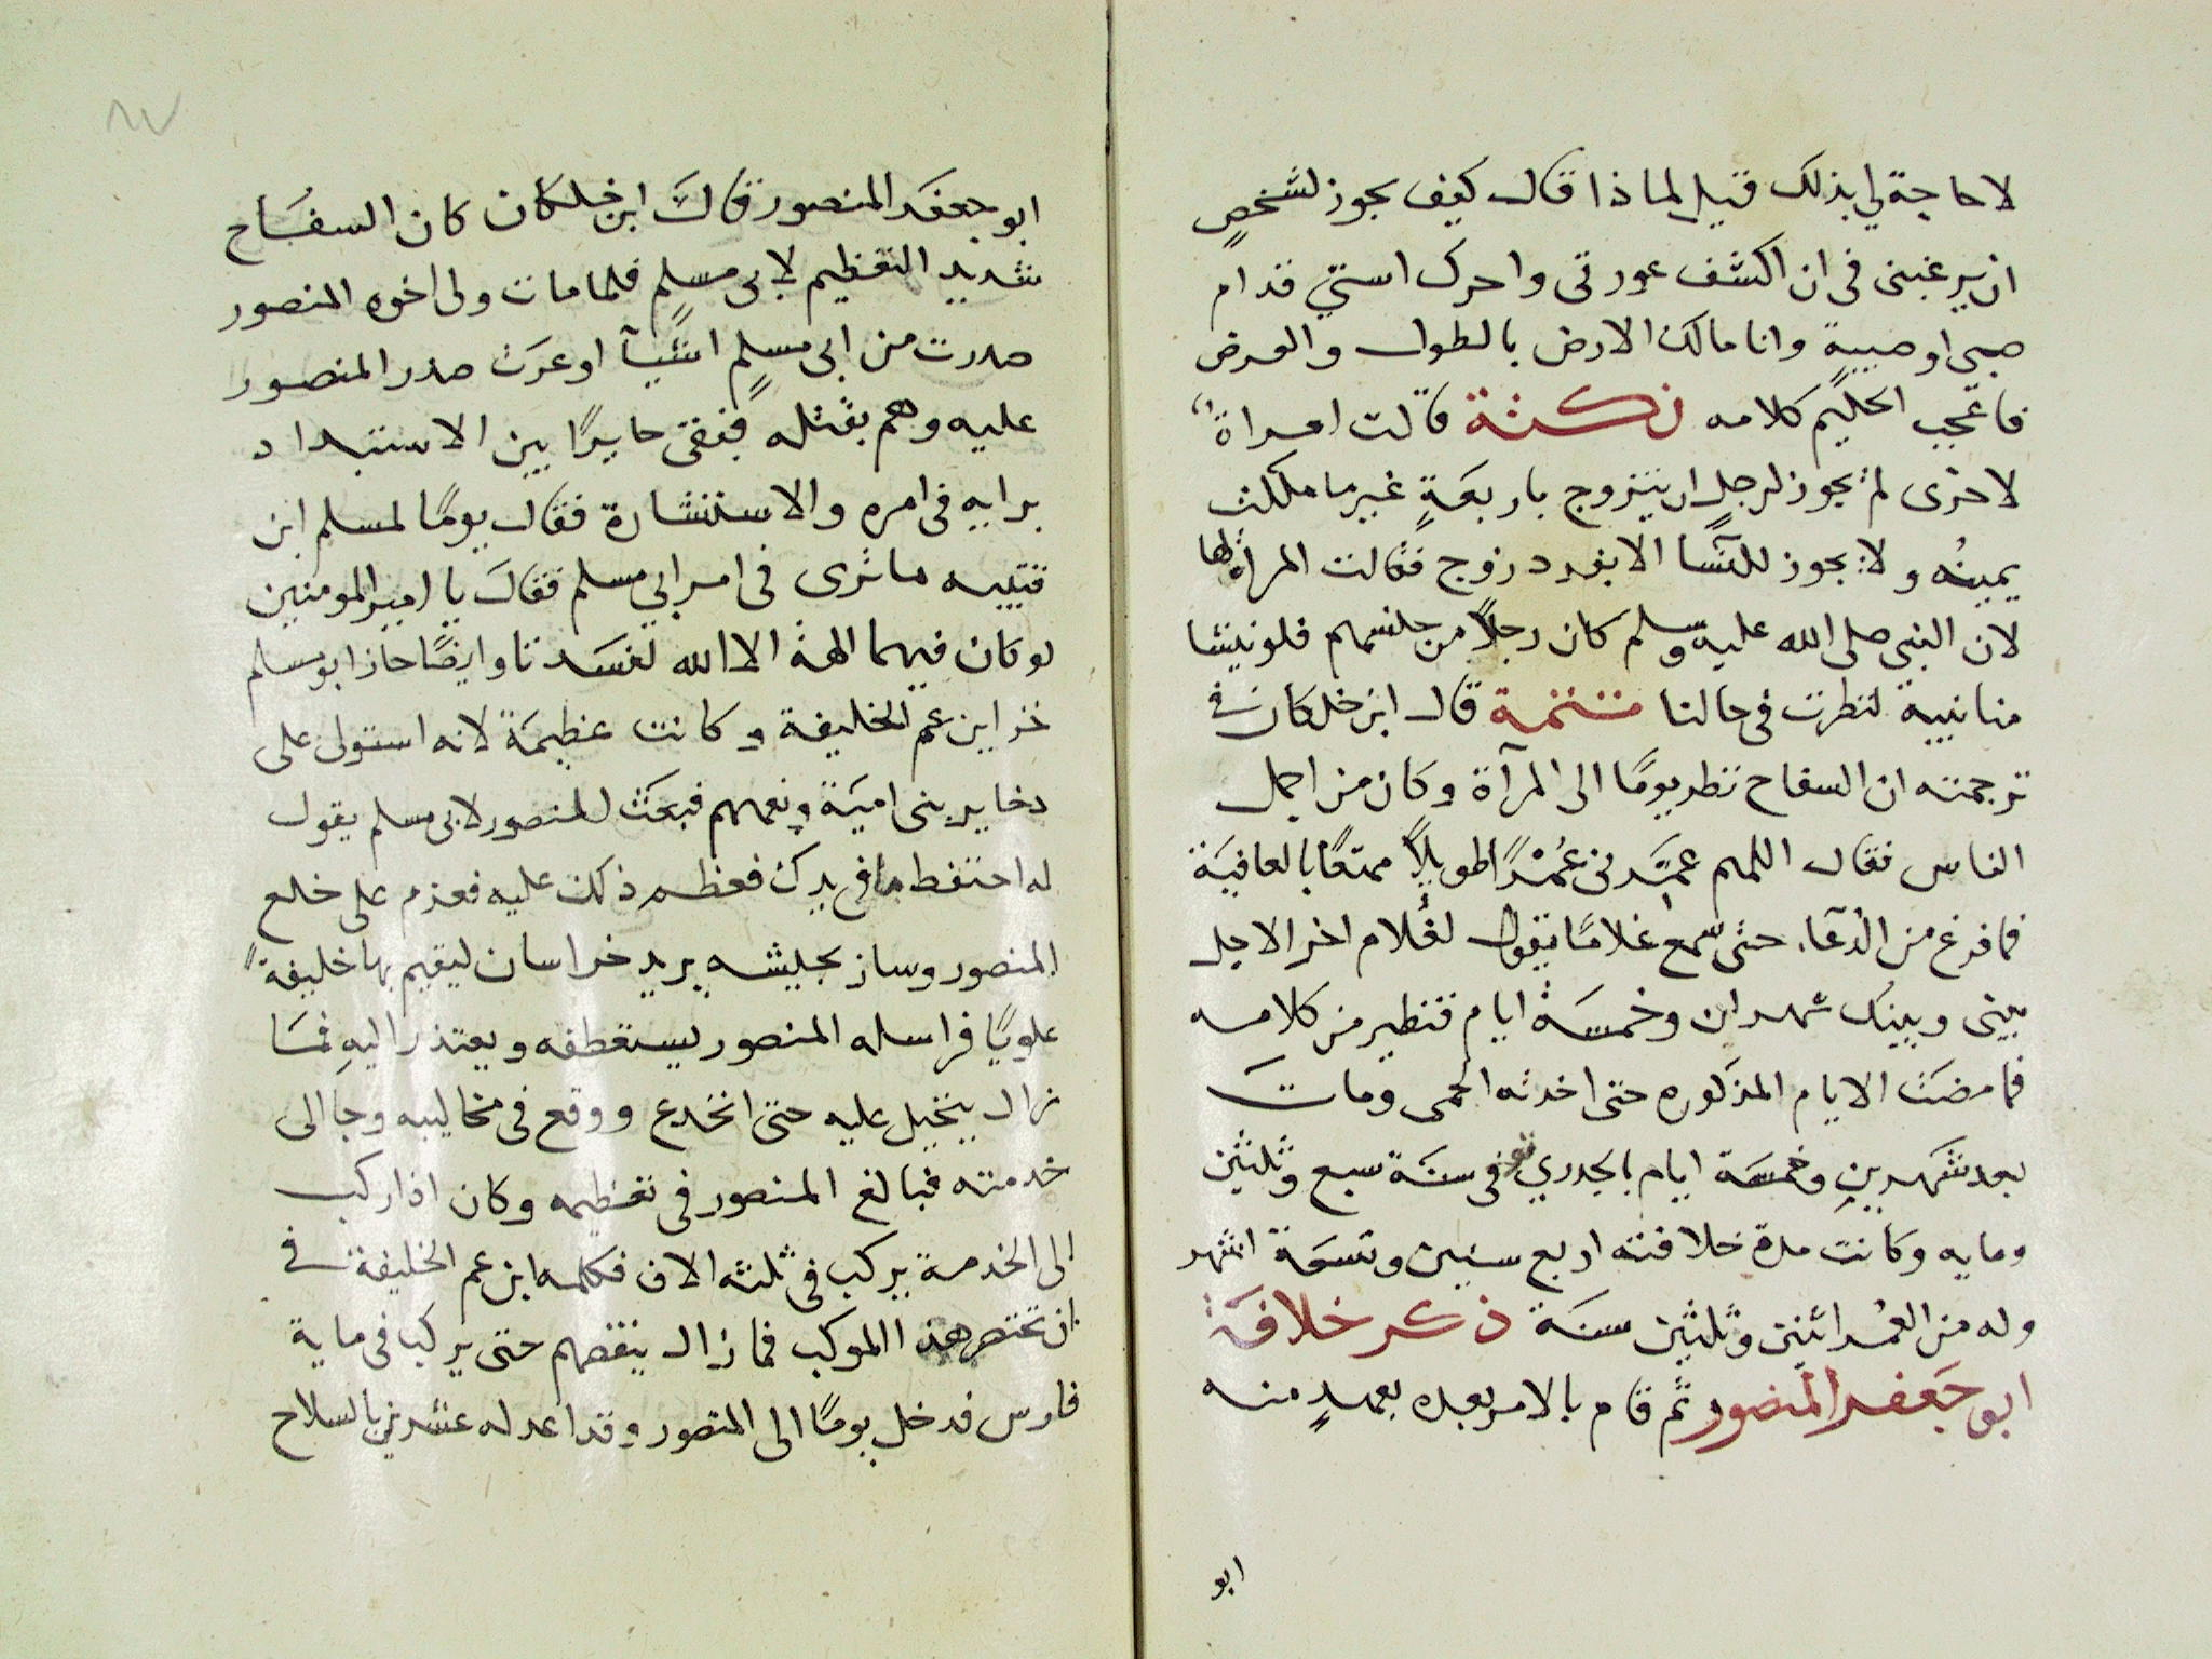 لا حاجة لي بذلك قيل لماذا قال كيف يجوز لشخصٍ
ان يرغبنى فى ان اكشف عورتى واحرك استي قدام
صبى او صبية وانا مالك الارض بالطول والعرض
فاعجب الحليم كلامه نكتة قالت امراة
لاخرى لم يجوز لرجل ان يتزوج باربعةٍ غير ما ملكت
يمينُه ولا يجوز للنسا الا بفرد زوج فقالت المراة لها
لان النبي صلى الله عليه وسلم كان رجلاً من جلسهم فلو نبشا
منا نبية لنظرت فى حالنا تتمة قال ابن خلكان فى
ترجمته ان السفاح نظر يومًا الى المرآة وكان من اجمل
الناس فقال اللهم عمّرنى عُمْرًا طويلاً ممتعًا بالعافيَة
فما فرغ من الدّعآء حتى سمع غلامًا يقول لغُلام اخر الاجل
بينى وبينك شهران وخمسَة ايام فتطير من كلامه
فما مضَت الايام المذكوره حتى اخدته الحمى وماتَ
بعد شهرينِ وخمسَة ايام بالجدري فى سنَة سبع وثلثين
ومايه وكانت مدة خلافته اربع سنين وتسعَة اشهر
وله من العُمر اثنين وثلثين سنَة ذكر خلافَة
ابو جَعفر المنصور ثم قام بالامر بعده بعهدٍ منه
ابو
ابو جعفَر المنصور قالَ ابن خلكان كان السفَاح
شديد التعظيم لابى مسلم فلما مات ولى اخوه المنصور
صدرت من ابى مسلمٍ اشيآ اوغرَت صدر المنصور
عليه وهم بقتله فبقى حايرًا بين الاستبداد
برايه فى امره والاستشارة فقال يومًا لمسلم ابن
قتيبه ما ترى فى امر ابي مسلم فقالَ يا امير المومنين
لو كان فيهما الهة الا الله لفسَدتا وايضًا حاز ابو مسلم
خزاين عم الخليفة وكانت عظيمَة لانه استولى على
دخاير بنى اميَة ونعمهم فبعَث المنصور لابى مسلم يقول
له احتفط بما فى يدك فعظم ذلك عليه فعزم على خلع
المنصور وسار بجيشه يريد خراسان ليقيم بها خليفةً
علويًا فراسله المنصور يستعطفه ويعتذر اليهِ فمَا
زال يتخيل عليه حتى انخدع ووقع فى مخاليبه وجا الى
خدمته فبالغ المنصور فى تعظيمه وكان اذا ركب
الى الخدمة يركب فى ثلثه الاف فكلمه ابن عم الخليفة فى
ان تختصر هذا الموكب فما زال ينقصهم حتى يركب فى ماية
فارس فدخل يومًا الى المنصور وقد اعد له عشرين بالسلاح